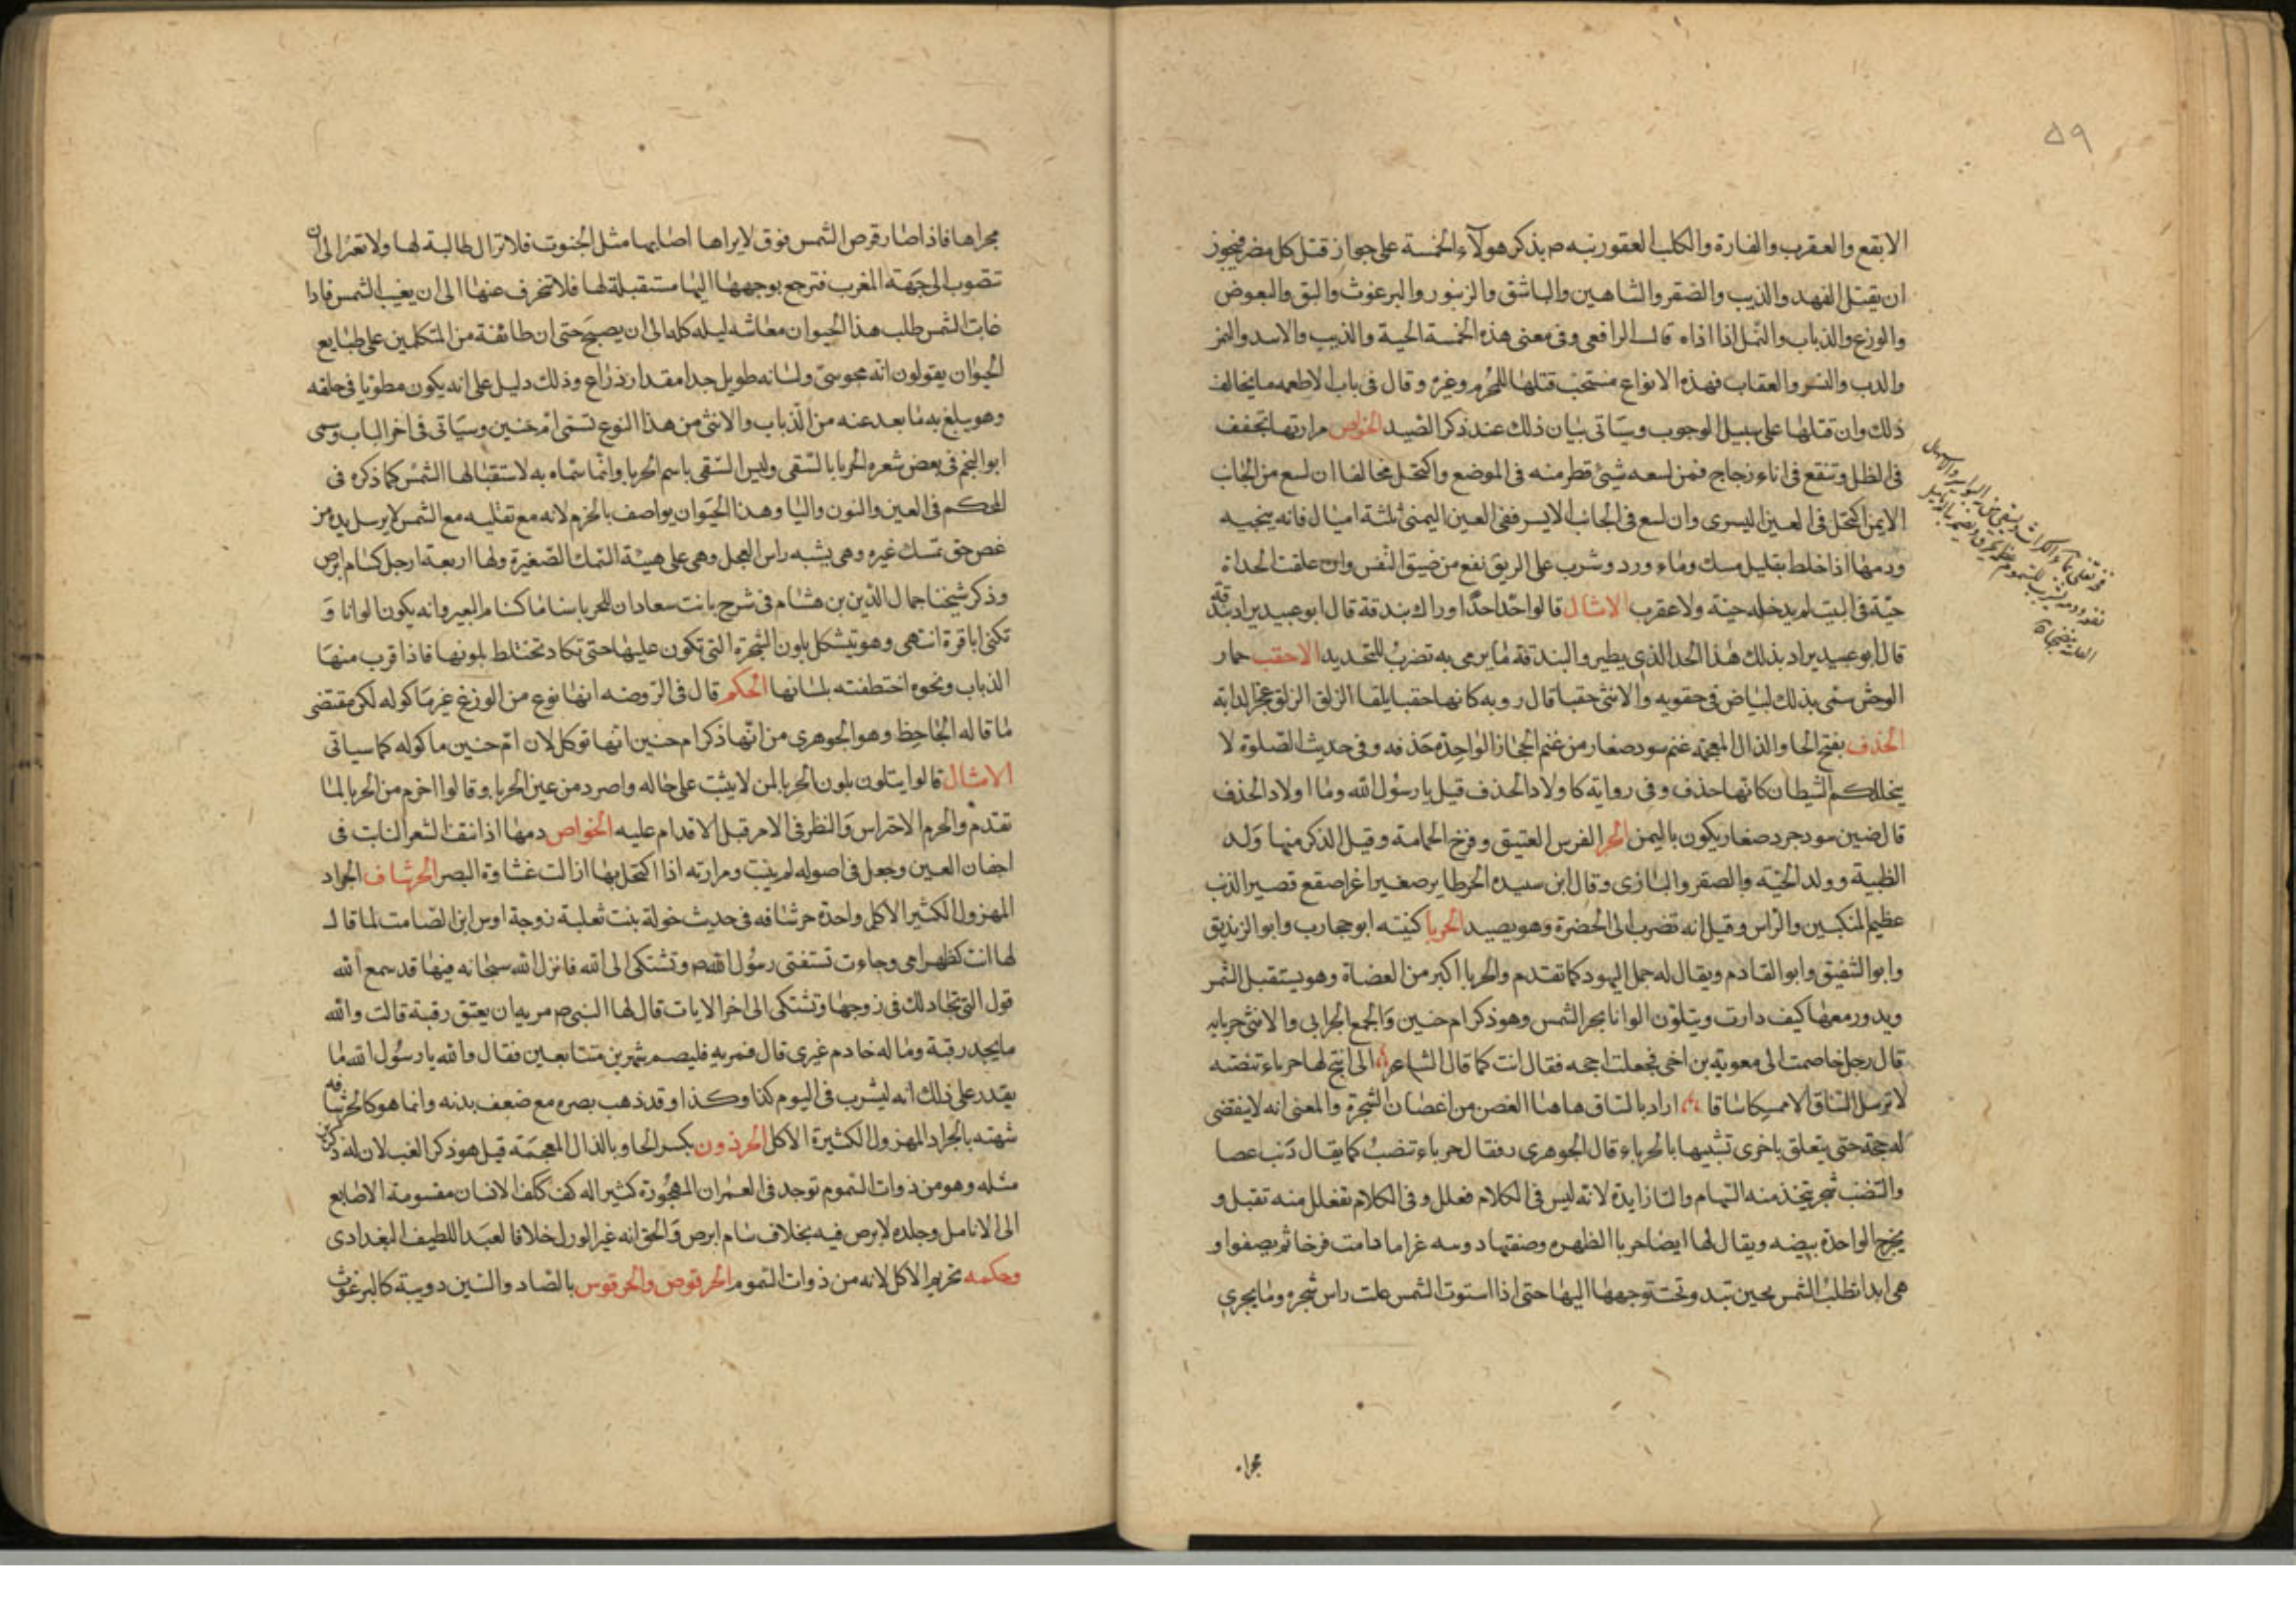 ٥٩
الابقع والعقرب والفارة والكلب العقور نبه ص بذكر هولآء الخمسة على جواز قتل كل مضر فيجوز
ان يقتل الفهد والذيب والصقر والشاهين والباشق والزنبور والبرغوث والبق والبعوض
والوزغ والذباب والنمل اذا اذاه قال الرافعى وفى معنى هذه الخمسة الحية والذيب والاسد والنمر
والدب والنسر والعقاب فهذه الانواع مستحب قتلها للمحرم وغيره وقال فى باب الاطعمه ما يخالف
ذلك وان قتلها على سبيل الوجوب وسياتى بيان ذلك عند ذكر الصيد الخواص مرارتها تجفف
فى الظل وتنقع فى اناء زجاج فمن لسعه شيئ قطر منه فى الموضع واكتحل مخالفا ان لسع من الجانب
الايمن اكتحل فى العين اليسرى وان لسع فى الجانب الايسر ففى العين اليمنى ثلثة اميال فانه ينجيه
ودمها اذا خلط بقليل مسك وماء ورد وشرب على الريق نفع من ضيق النفس وان علقت الحداة
حيّة فى البيت لم يدخله حية ولا عقرب الامثال قالوا حدا حدا وراك بندقة قال ابو عبيد يراد بندقة
قال ابو عبيد يراد بذلك هذا الحدا الذى يطير والبندقة ما يرمى به تضرب للتحديد الاحقب حمار
الوحش سمى بذلك لبياض فى حقويه والانثى حقبا قال روبه كانها حقبا بلقا الزلق الزلق عجز الدابة
الحذف بفتح الحا والذال المعجمة غنم سود صغار من غنم الحجاز الواحدة حذفه وفى حديث الصلوة لا
يتخللكم الشيطان كانها حذف وفى رواية كاولاد الحذف قيل يا رسول الله وما اولاد الحذف
قال ضين سود جرد صغار يكون باليمن الحر الفرس العتيق وفرخ الحمامة وقيل الذكر منها وولد
الظبية وولد الحية والصقر والبازى وقال ابن سيده الحر طاير صغير اغر اصقع قصير الذنب
عظيم المنكبين والراس وقيل انه تضرب الى الخضرة وهو يصيد الحربا كنيته ابو حجارب وابو الزنديق
وابو الشقيق وابو القادم ويقال له جمل اليهود كما تقدم والحربا اكبر من العضاة وهو يستقبل الشمس
ويدور معها كيف دارت ويتلون الوانا بحر الشمس وهو ذكر ام حنين والجمع الحرابى والانثى حربايه
قال رجل خاصمت الى معوية بن اخى فجعلت احجه فقال انت كما قال الشاعر انى اتيح لها حرباء تنضبة
لا ترسل الساق الا ممسكا ساقا اراد بالساق هاهنا الغصن من اغصان الشجرة والمعنى انه لا ينقضى
له حجة حتى يتعلق باخرى تشبيها بالحرباء قال الجوهرى ويقال حرباء تنضب كما يقال ذئب عصا
والتنضب شجر يتخذ منه السهام والتا زايدة لانه ليس فى الكلام فعلل وفى الكلام تفعلل منه تقبل و
يخرج الواحدة بيضه ويقال لها ايضا حربا الظهره وصفتها دوسه غراما دامت فرخا ثم يصفر او
هى ابدا تطلب الشمس بحين تبدو وتحت توجهها اليها حتى اذا استوت الشمس علت راس شجره وما يجرى
مجراه
مجراها فاذا صار قرص الشمس فوق لا يراها اصابها مثل الجنون فلا تزال طالبة لها ولا تفترالى ان
تصوب الى جهة المغرب فترجع بوجهها اليها مستقبلة لها فلا تنحرف عنها الى ان يغيب الشمس فاذا
غابت الشمس طلب هذا الحيوان معاشه ليله كله الى ان يصبح حتى ان طائفة من المتكلمين على طبايع
الحيوان يقولون انه مجوسى ولسانه طويل جدا مقدار ذراع وذلك دليل على انه يكون مطويا فى حلقه
وهو يبلغ به ما بعد عنه من الذباب والانثى من هذا النوع تسمى ام حنين وسياتى فى اخر الباب وسمى
ابو النجم فى بعض شعره الحربا بالشقى وليس الشقى باسم الحربا وانما سماه به لاستقبالها الشمس كما ذكره فى
المحكم فى العين والنون واليا وهذا الحيوان يواصف بالحزم لانه مع تقلبه مع الشمس لا يرسل يده من
غصن حتى تمسك غيره وهى يشبه راس العجل وهى على هيئة السمك الصغيرة ولها اربعة ارجل كسام ابرص
وذكر شيخنا جمال الدين بن هشام فى شرح بانت سعاد ان للحربا سناما كسنام البعير وانه يكون الوانا و
تكنى ابا قرة انتهى وهو يتشكل بلون الشجرة التى تكون عليها حتى تكاد تختلط بلونها فاذا قرب منها
الذباب ونحوه اختطفته بلسانها الحكم قال فى الروضه انها نوع من الوزغ غير ماكوله لكن مقتضى
ما قاله الجاحظ وهو الجوهرى من انها ذكر ام حنين انها توكل لان ام حنين ماكوله كما سياتى
الامثال قالوا يتلون بلون الحربا لمن لا يثبت على حاله واصرد من عين الحربا وقالوا احزم من الحربا لما
تقدم والحزم الاحتراس والنظر فى الامر قبل الاقدام عليه الخواص دمها اذا نتف الشعر النابت فى
اجفان العين وجعل فى اصوله لم ينبت ومرارته اذا اكتحل بها ازالت غشاوة البصر الحرشاف الجراد
المهزول الكثير الاكل واحدة حرشافه فى حديث خولة بنت ثعلبة زوجة اوس ابن الصامت لما قال
لها انت كظهر امى وجاءت تستفتى رسول الله ص وتشتكى الى الله فانزل الله سبحانه فيها قد سمع الله
قول التى تجادلك فى زوجها وتشتكى الى اخر الايات قال لها النبى ص مريه ان يعتق رقبة قالت والله
ما يجد رقبة وما له خادم غيرى قال فمريه فليصم شهرين متتابعين فقال والله يا رسول الله ما
يقدر على ذلك انه ليشرب فى اليوم كذا وكذا وقد ذهب بصره مع ضعف بدنه وانما هو كالحرشافه
شبهته بالجراد المهزول الكثيرة الاكل الحرذون بكسر الحا وبالذال المعجمة قيل هو ذكر الضب لان له ذكرين
مثله وهو من ذوات السموم توجد فى العمران المهجورة كثيرا له كف ككف الانسان مقسومة الاصابع
الى الانامل وجلده لا برص فيه بخلاف سام ابرص والحق انه غير الورل خلافا لعبد اللطيف البغدادى
وحكمه تحريم الاكل لانه من ذوات السموم الحرقوص والحرقوس بالصاد والسين دويبة كالبرغوث